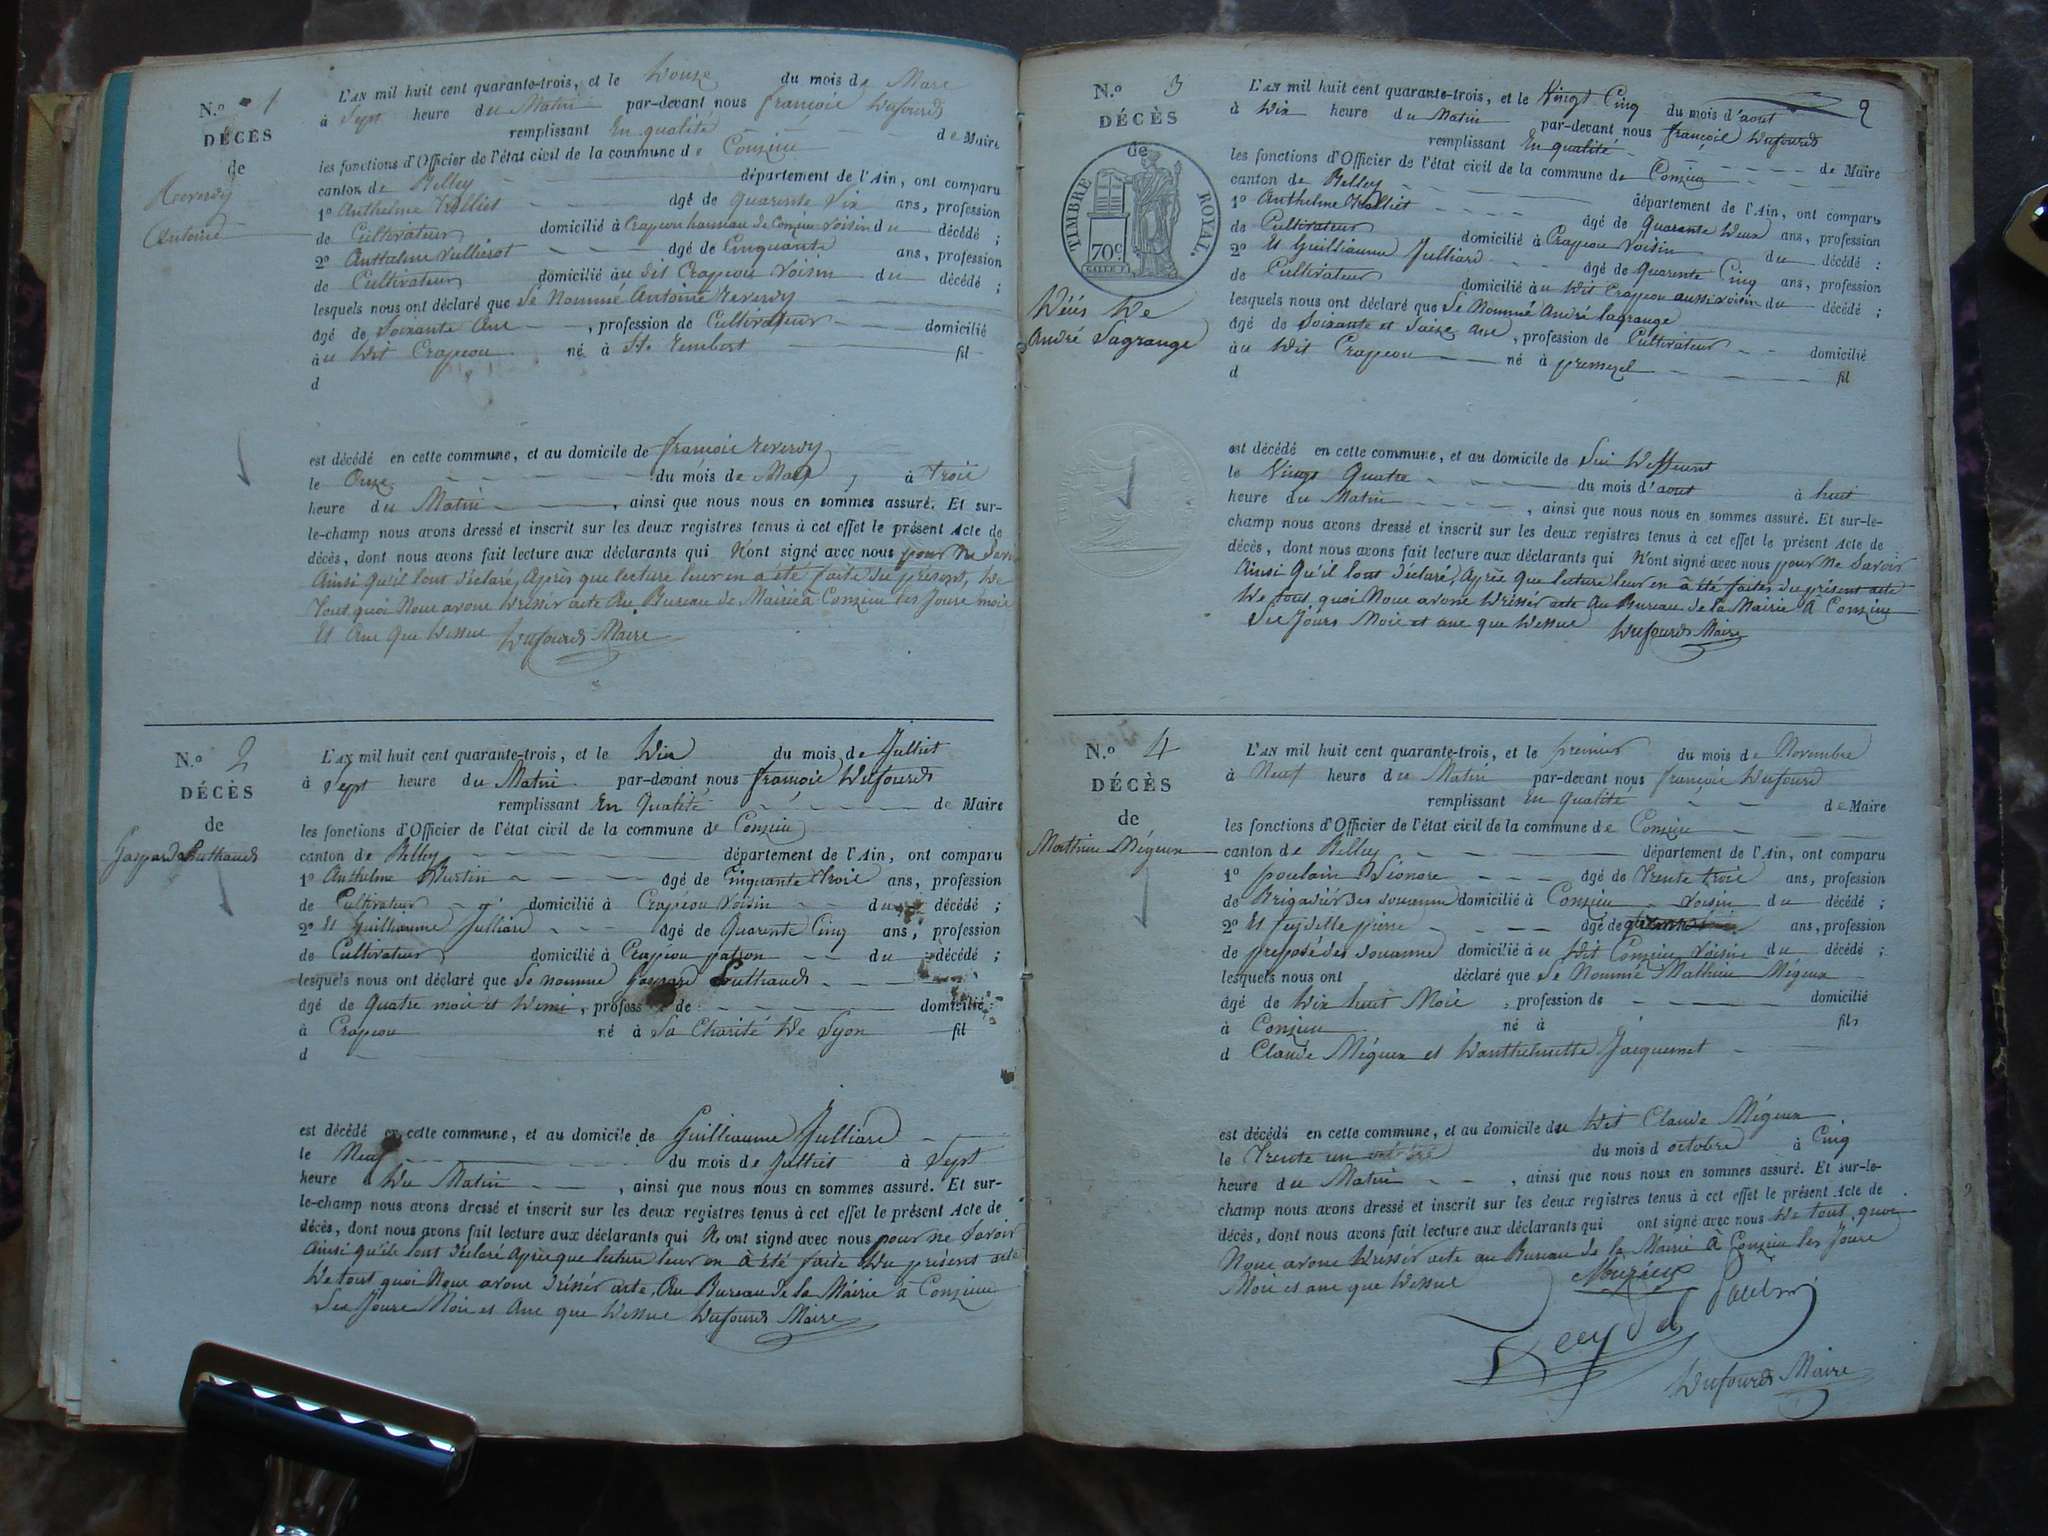 N.º 1
DÉCÈS
de
Reverdy
Antoine
L'AN mil huit cent quarante-trois, et le Douze du mois de Mars
à Sept heure du Matin par-devant nous françois Dufourd
remplissant En qualité de Maire
les fonctions d'Officier de l'état civil de la commune de Conzieu
canton de Belley département de l'Ain, ont comparu
1º Anthelme Trolliet âgé de Quarente Dix ans, profession
de Cultivateur domicilié à Crapeou hameau de Conzieu voisin du décédé ;
2º Anthelme Vullierot âgé de Cinquante ans, profession
de Cultivateur domicilié au dit Crapeou Voisin du décédé ;
lesquels nous ont déclaré que Le Nommé Antoine Reverdy
âgé de Soixante Ans, profession de Cultivateur domicilié
au Dit Crapeou né à St. Rembert fil
d
est décédé en cette commune, et au domicile de françois Reverdy
le Onze du mois de Mars, à Trois
heure du Matin, ainsi que nous nous en sommes assuré. Et sur-
le-champ nous avons dressé et inscrit sur les deux registres tenus à cet effet le présent Acte de
décès, dont nous avons fait lecture aux déclarants qui N'ont signé avec nous pour ne Savoir
Ainsi Qu'il lont déclaré, Après que lecture leur en a été faite du présent, De
Tout quoi Nous avons Dressér acte Au Bureau de Mairie à Conzieu les Jours mois
Et Ans Que Dessus Dufourd Maire
N.º 2
DÉCÈS
de
Gaspard Buthaud
L'AN mil huit cent quarante-trois, et le Dix du mois de Julliet
à Sept heure du Matin par-devant nous françois Dufourd
remplissant En Qualité de Maire
les fonctions d'Officier de l'état civil de la commune de Conzieu
canton de Belley département de l'Ain, ont comparu
1º Anthelme Burtin âgé de Cinquante trois ans, profession
de Cultivateur domicilié à Crapeou Voisin du décédé ;
2º Et Guilliaume Julliard âgé de Quarente Cinq ans, profession
de Cultivateur domicilié à Crapeou patron du décédé ;
lesquels nous ont déclaré que Le nommé Gaspard Buthaud
âgé de Quatre mois et Demi, profess de domicilié
à Crapeou né à La Charité De Lyon fil
d
est décédé en cette commune, et au domicile de Guilliaume Julliard
le Neuf du mois de Julliet à Sept
heure Du Matin, ainsi que nous nous en sommes assuré. Et sur-
le-champ nous avons dressé et inscrit sur les deux registres tenus à cet effet le présent Acte de
décès, dont nous avons fait lecture aux déclarants qui N'ont signé avec nous pour ne Savoir
Ainsi qu'ils lont déclaré Après que lecture leur en a été faite Du présent acte
De tout quoi Nous avons dréssér acte Au Bureau de la Mairie à Conzieu
Les Jours Mois et Ans que Dessus Dufourd Maire
2
N.º 3
DÉCÈS
de
TIMBRE ROYAL.
70 c.
Décès De
André Lagrange
L'AN mil huit cent quarante-trois, et le Vingt Cinq du mois d'aout
à Dix heure du Matin par-devant nous françois Dufourd
remplissant En qualité de Maire
les fonctions d'Officier de l'état civil de la commune de Conzieu
canton de Belley département de l'Ain, ont comparu
1º Anthelme Trolliet âgé de Quarante Deux ans, profession
de Cultivateur domicilié à Crapeou Voisin du décédé ;
2º Et Guilliaume Julliard âgé de Quarente Cinq ans, profession
de Cultivateur domicilié au Dit Crapeou aussi voisin du décédé ;
lesquels nous ont déclaré que Le Nommé André lagrange
âgé de Soixante et Saize Ans, profession de Cultivateur domicilié
au Dit Crapeou né à premezel fil
d
est décédé en cette commune, et au domicile de Lui Deffeunt
le Vingt Quatre du mois d'aout à huit
heure du Matin, ainsi que nous nous en sommes assuré. Et sur-le-
champ nous avons dressé et inscrit sur les deux registres tenus à cet effet le présent Acte de
décès, dont nous avons fait lecture aux déclarants qui N'ont signé avec nous pour ne Savoir
Ainsi Qu'il lont déclaré, Après Que lecture leur en a été faites du présent acte
De tout quoi Nous avons Dréssér acte Au Bureau de la Mairie à Conzieu
Les Jours Mois et ans que Dessus Dufourd Maire
N.º 4
DÉCÈS
de
Mathieu Méguex
L'AN mil huit cent quarante-trois, et le premier du mois de Novembre
à Neuf heure du Matin par-devant nous françois Dufourd
remplissant En qualité de Maire
les fonctions d'Officier de l'état civil de la commune de Conzieu
canton de Belley département de l'Ain, ont comparu
1º poulain Léonore âgé de Trente trois ans, profession
de Brigadiér des Douanne domicilié à Conzieu voisin du décédé ;
2º Et feydelle pierre âgé de ans, profession
de preposé des Douanne domicilié au Dit Conzieu Voisin du décédé ;
lesquels nous ont déclaré que Le Nommé Mathieu Méguex
âgé de Dix huit Mois, profession de domicilié
à Conzieu né à fils
d Claude Méguex et Danthelmette Jacquemet
est décédé en cette commune, et au domicile du Dit Claude Méguex
le Trente un du mois d octobre à Cinq
heure du Matin, ainsi que nous nous en sommes assuré. Et sur-le-
champ nous avons dressé et inscrit sur les deux registres tenus à cet effet le présent Acte de
décès, dont nous avons fait lecture aux déclarants qui ont signé avec nous De tout quoi
Nous avons Dressér acte au Bureau de la Mairie à Conzieu les Jours
Mois et ans que Dessus
Dufourd Maire